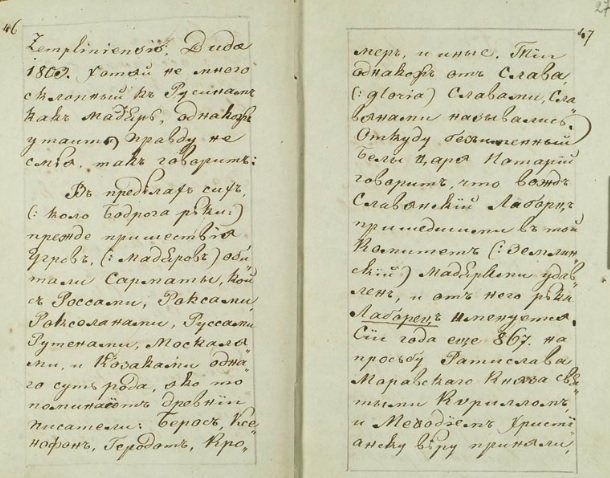 46
Zempliniensis. Buda
1803. Хотяй не много
склонный къ Русинамъ
какъ Мадѣръ, однакожъ
утаити правду не
смѣя, такъ говоритъ:
Въ предѣлахъ сихъ,
(: коло Бодрога рѣки :)
прежде пришествія
Угровъ, (: Мадѣровъ :) оби
тали Сарматы, кой
съ Россами, Роксами,
Роксоланами, Руссами
Рутенами, Москаля
ми, и Козаками одна
го суть рода, яко то
поминаютъ древніи
писатели: Беросъ, Ксе
нофонъ, Геродотъ, Кро
47
27
меръ, и иные. Тіи
однакожъ отъ Слава
(: gloria) Славами, Сла
вянами назывались.
Откуду безъименный
Белы Царя Нотарій
говоритъ, что вождъ
Славянскій Лаборцъ
пришедшими въ той
Комитетъ (: Землин
скій) Мадѣрами удав
ленъ, и отъ него рѣка
Лаборецъ именуется.
Сіи года еще 867. на
просьбу Ратислава
Моравскаго Князя свя
тыми Кирилломъ,
и Меѳодіемъ Христі
анску вѣру приняли,